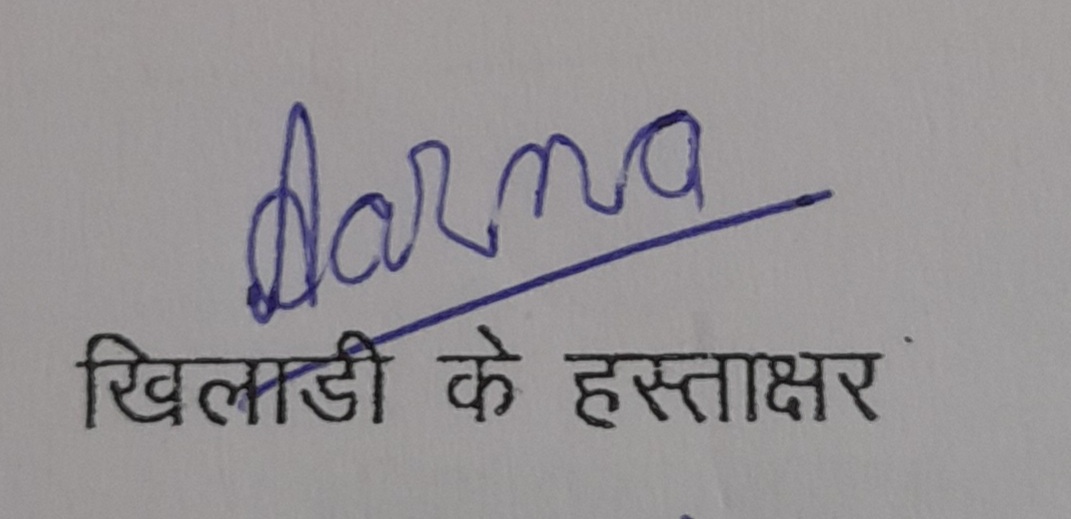 Aarna
खिलाडी के हस्ताक्षर